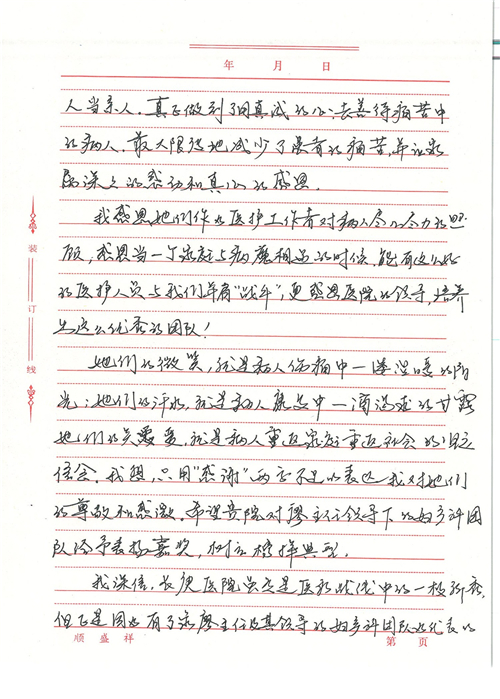 年 月 日
人当亲人.真正做到了用真诚的心,去善待病苦中
的病人.最大限度地减少了患者的病苦,并让家
属深深的感动和真心的感恩.
我感恩她们作为医护工作者对病人尽心尽力的照
顾,感恩当一个家庭与病魔相遇的时候,能有这么好
的医护人员与我们并肩"战斗",更感恩医院的领导,培养
出这么优秀的团队!
她们的微笑,就是病人伤痛中一缕温暖的阳
光;她们的汗水,就是病人 中一滴 的甘露
她们的关爱,就是病人重返家庭重返社会的
我想,只用"感谢"两字不足以表达我对她们
的尊敬和感激.希望贵院对廖主任领导下的妇产科团
队给予表扬嘉奖,树立榜样典型.
我深信,长庚医院虽然是医 中的一枝新秀,
但正是因为有了象廖主任及其领导的妇产科团队为代表的
装
订
线
顺盛祥
第 页